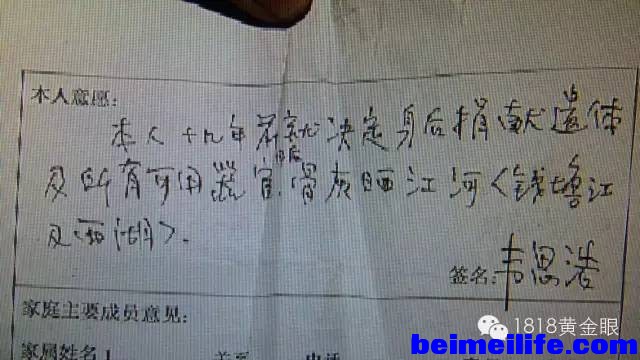 本人意愿：
本人十九年前就决定身后捐献遗体
及所有可用器官。日后骨灰晒江河〈钱塘江
及〈西湖〉。
签名：韦思浩
家庭主要成员意见：
家属姓名
关系
电话
1818黄金眼
beimeilife.com